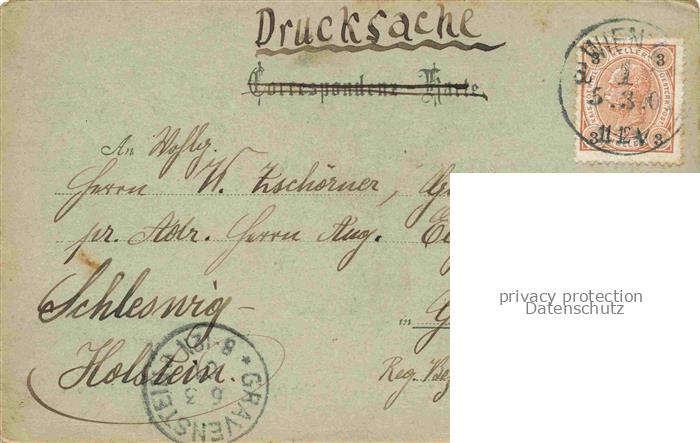 Drucksache
Correspondenz-Karte.
WIEN
1
11-12 V
3 HELLER 3
3 3
An Wohlg.
Herrn W. Zschörner,
pr. Adr. Herrn Aug.
Schleswig-
in
Holstein.
Reg. Bez
GRAVENSTEIN
8-12V
privacy protection
Datenschutz